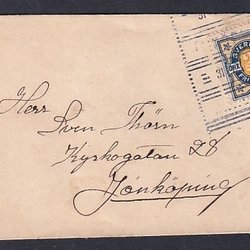 Herr
Sven Thörn
Kyrkogatan 28
Jönköping